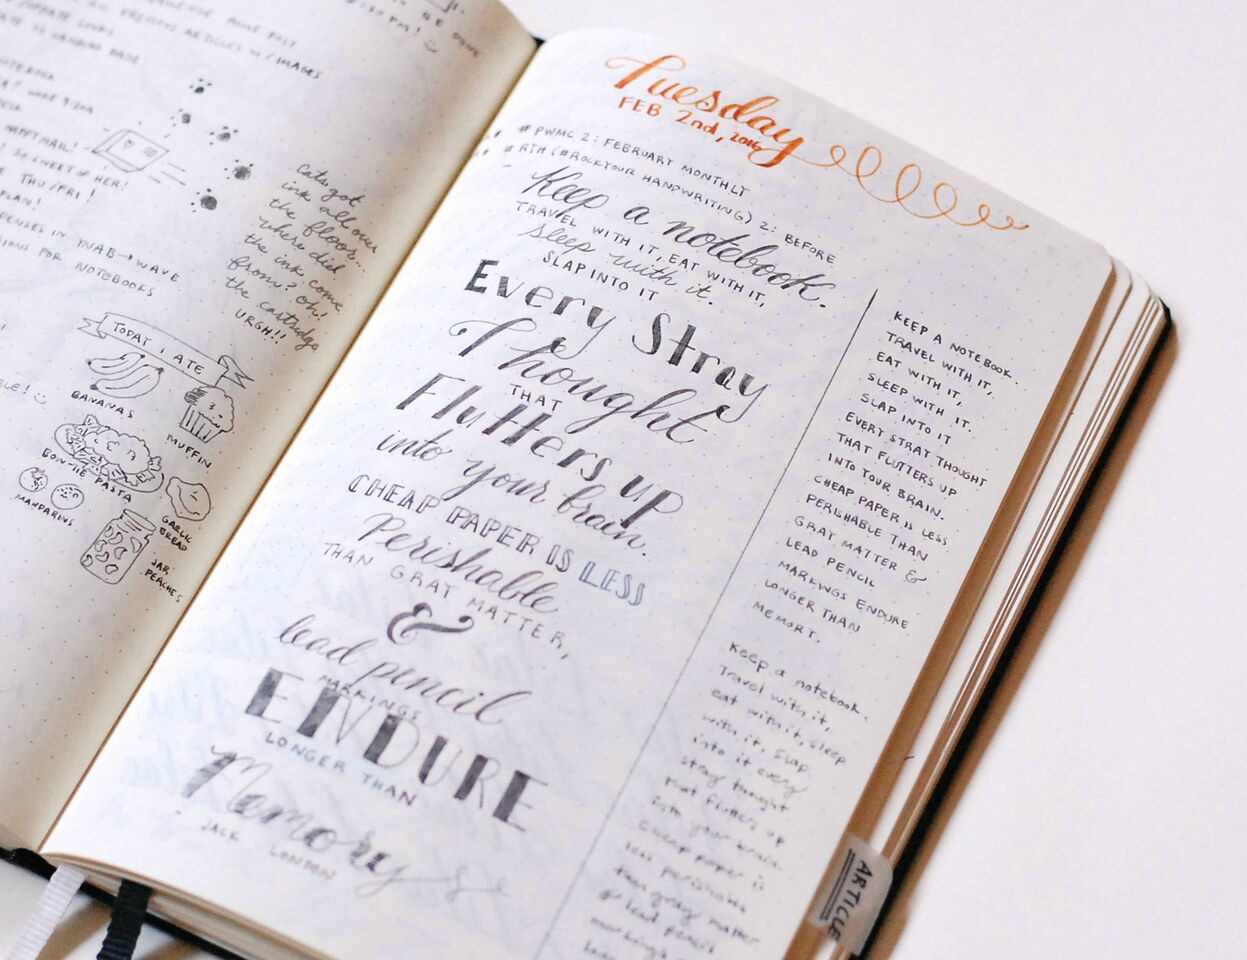 ALL PREVIOUS ARTICLES W/ IMAGES
NOTEBOOK
HAPPY MAIL!
SO SWEET OF HER!
THU/FRI!
PLAN!
IN YNAB → WAVE
FOR NOTEBOOKS
Cats got
ink all over
the floor...
where did
the ink come
from? oh!
the cartridge
URGH!!
TODAY I ATE
BANANAS
MUFFIN
BOW-TIE PASTA
MANDARINS
GARLIC
BREAD
JAR
PEACHES
Tuesday
FEB 2nd, 2016
#PWMC 2: FEBRUARY MONTHLY
#RYH (#ROCKYOUR HANDWRITING) 2: BEFORE
Keep a notebook.
TRAVEL WITH IT, EAT WITH IT,
sleep with it.
SLAP INTO IT
Every Stray
Thought
THAT
Flutters up
into your brain.
CHEAP PAPER IS LESS
Perishable
THAN GRAY MATTER,
&
lead pencil
MARKINGS
ENDURE
LONGER THAN
Memory
JACK LONDON
KEEP A NOTEBOOK.
TRAVEL WITH IT,
EAT WITH IT,
SLEEP WITH IT.
SLAP INTO IT
EVERY STRAY THOUGHT
THAT FLUTTERS UP
INTO YOUR BRAIN.
CHEAP PAPER IS LESS
PERISHABLE THAN
GRAY MATTER &
LEAD PENCIL
MARKINGS ENDURE
LONGER THAN
MEMORY.
Keep a notebook.
Travel with it,
eat with it, sleep
with it. Slap
into it every
stray thought
that flutters up
into your brain.
Cheap paper is
less perishable
than gray matter
& lead pencil
markings
ARTICLE